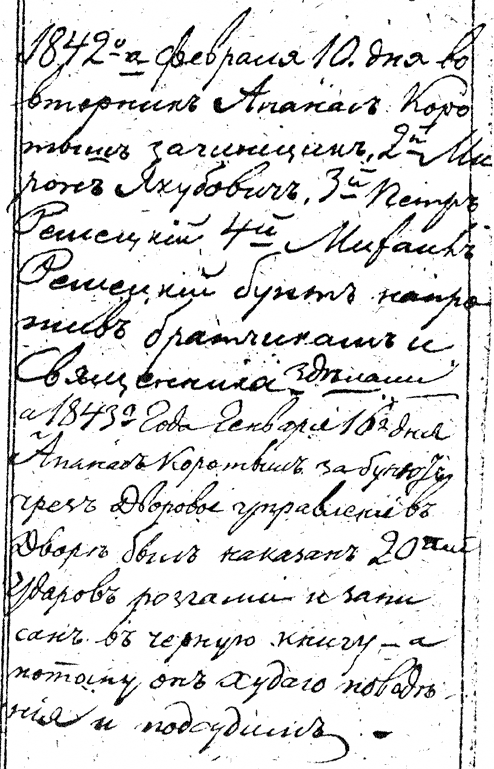 1842го-а февраля 10. дня во
вторникъ Апанасъ Коро
тышъ зачинщикъ, 2й Ми
ронъ Якубовичъ, 3й Петръ
Решецкій 4й Михаилъ
Решецкій бунтъ напро
тивъ братчикамъ и
Священника здѣлали
а 1843го Года Генваря 16го дня
Апанасъ Коротышъ за бунт
чрезъ Дворовое управленіе въ
Дворѣ былъ наказанъ 20тью
ударовъ розгами и запи
санъ въ черную книгу - а
потому онъ худаго поведѣ
нія и подсудимъ. -